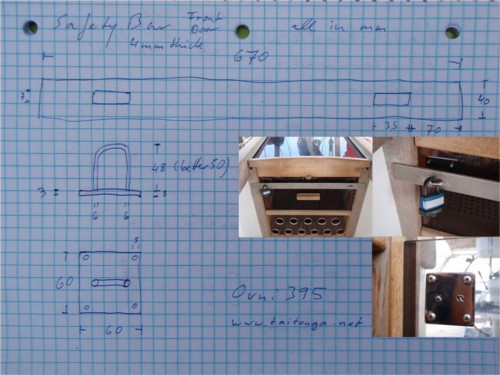 Safety Bar Front Door all in mm
4mm thick
670
7
40
35 70
48 (better 50)
3
6 6
5
60
60
Ovni 395
www.taitonga.net